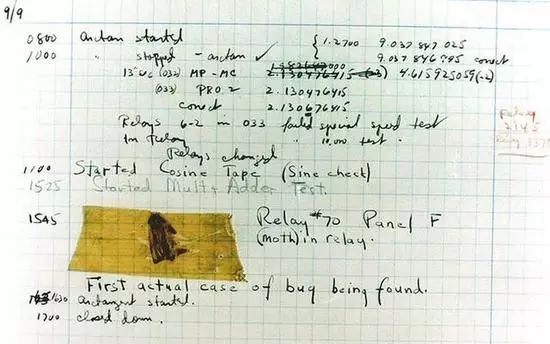 9/9
0800 Antan started
1000 " stopped - antan ✓ { 1.2700 9.037 847 025
9.037 846 995 correct
13"uc (032) MP - MC 2.130476415 4.615925059(-2)
(033) PRO 2 2.130476415
correct 2.130676415
Relays 6-2 in 033 failed special speed test
In Relay " 10,000 test.
Relay
2145
Relay 337
Relays changed
1100 Started Cosine Tape (Sine check)
1525 Started Mult + Adder Test.
1545 Relay #70 Panel F
(moth) in relay.
First actual case of bug being found.
1630 Antangent started.
1700 closed down.